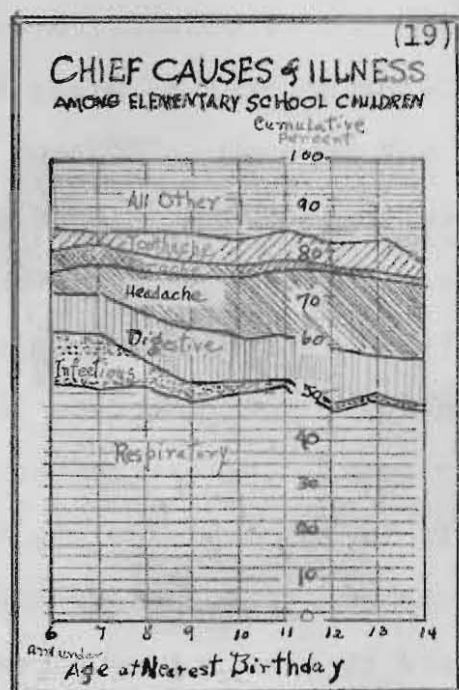 (19)
CHIEF CAUSES of ILLNESS
AMONG ELEMENTARY SCHOOL CHILDREN
Cumulative
Percent
100
90
All Other
Toothache
80
Headache
70
60
Digestive
Infectious
50
40
Respiratory
30
20
10
0
6 7 8 9 10 11 12 13 14
and under
Age at Nearest Birthday